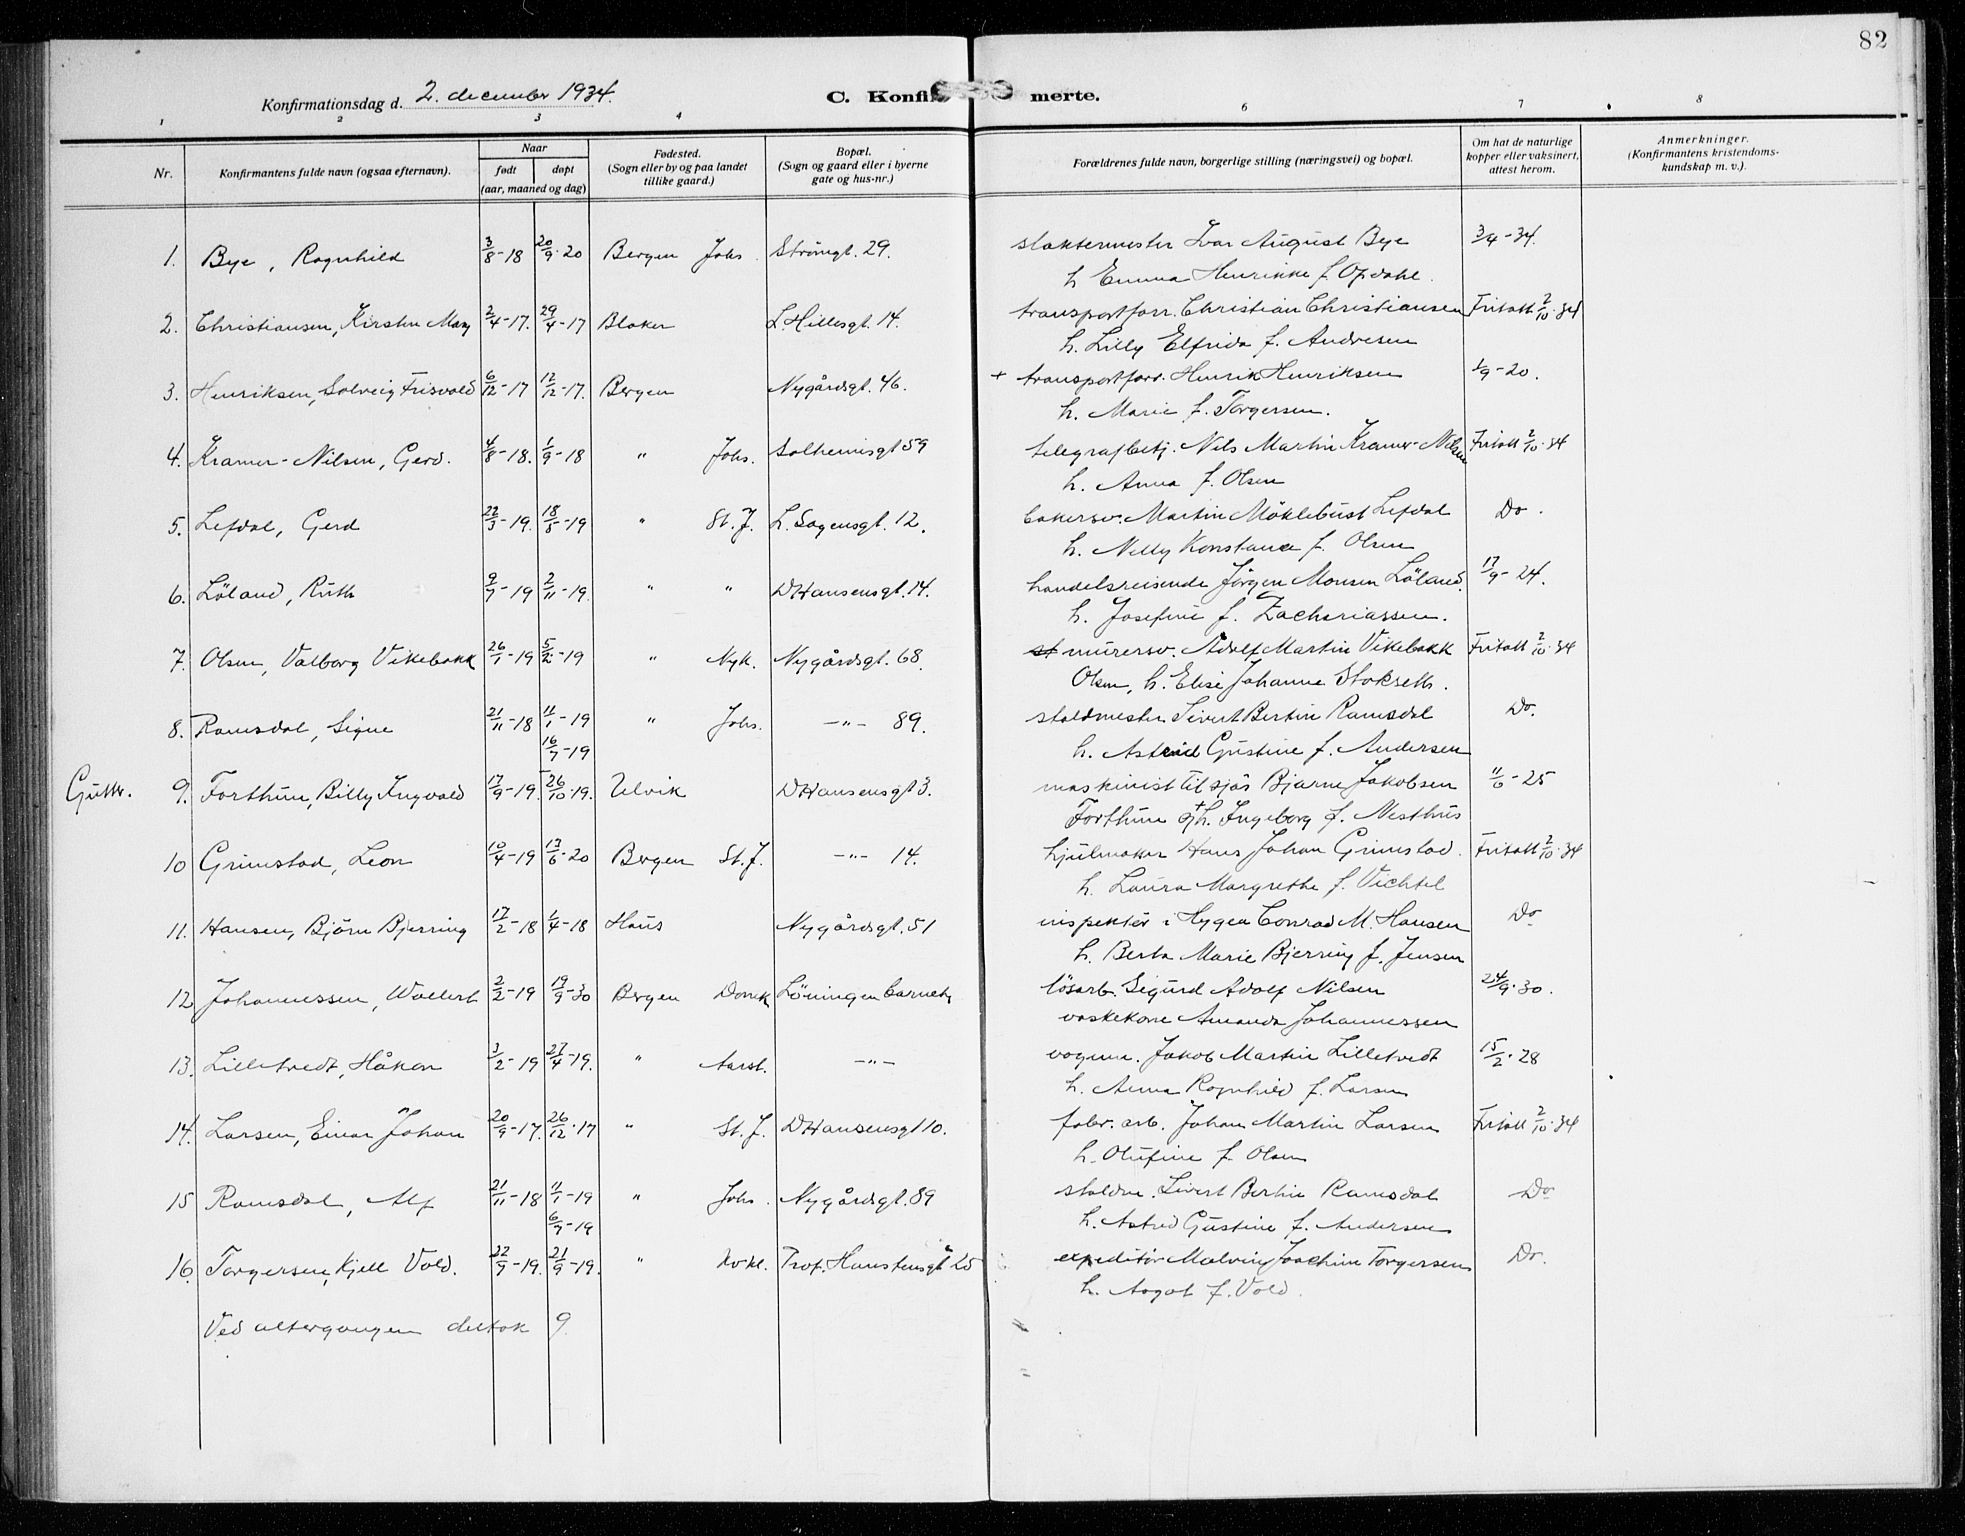 82
Konfirmationsdag d. 2. december 1934.
C. Konfirmerte.
1 2 3 4 6 7 8
Nr. Konfirmantens fulde navn (ogsaa efternavn). Naar født døpt (aar, maaned og dag) Fødested. (Sogn eller by og paa landet tillike gaard.) Bopæl. (Sogn og gaard eller i byerne gate og hus-nr.) Forældrenes fulde navn, borgerlige stilling (næringsvei) og bopæl. Om hat de naturlige kopper eller vaksinert, attest herom. Anmerkninger. (Konfirmantens kristendomskundskap m. v.).
1. Bye, Ragnhild 3/8-18 20/9-20 Bergen Johs. Strömgt. 29. slaktermester Ivar August Bye 3/4-34.
h. Emma Henrikke f. Opdahl.
2. Christiansen, Kirsten Mary 2/4-17. 29/4-17 Blaker L. Hillesgt. 14. transportforr. Christian Christiansen Fritatt 2/10-34
h. Lilly Elfrida f. Andresen
3. Henriksen, Solveig Frisvold 6/12-17 12/12-17. Bergen Nygårdsgt. 46. + transportforr. Henrik Henriksen 1/9-20.
h. Marie f. Torgersen.
4. Kramer-Nilsen, Gerd. 4/8-18. 1/9-18 " Johs. Solheimsgt 59 telegrafbetj. Nils Martin Kramer-Nilsen Fritatt 2/10-34
h. Anna f. Olsen
5. Lefdal, Gerd 22/3-19. 18/5-19 " St. J. L. Sagensgt. 12. bakersv. Martin Möklebust Lefdal Do.
h. Nelly Konstance f. Olsen
6. Löland, Ruth 9/7-19 2/11-19. " " D Hansensgt. 14. handelsreisende Jörgen Monsen Löland. 17/9-24.
h. Josefine f. Zachariassen.
7. Olsen, Valborg Vikebakk 26/1-19 5/2-19 " Nyk. Nygårdsgt. 68. murersv. Adolf Martin Vikebakk Fritatt 2/10-34
Olsen, h. Elise Johanne Stokseth.
8. Ramsdal, Signe 21/11-18 11/1-19 " Johs. -"- 89. staldmester Sivert Bertin Ramsdal Do.
16/7-19 h. Astrid Gustine f. Andersen
Gutter. 9. Forthun, Billy Ingvald 17/9-19. 26/10-19. Ulvik D Hansensgt 3. maskinist til sjös Bjarne Jakobsen 11/6-25
Forthun og h. Ingeborg f. Nesthus
10 Grimstad, Leon 10/4-19 13/6-20 Bergen St. J. -"- 14. hjulmaker Hans Johan Grimstad. Fritatt 2/10-34
h. Laura Margrethe f. Vichtel
11. Hansen, Björn Bjerring 17/2-18 1/4-18 Haus Nygårdsgt. 51 inspektör i Hygea Conrad M. Hansen Do
h. Berta Marie Bjerring f. Jensen
12. Johannessen, Wollert 2/2-19 19/9-30 Bergen Domk Löningen barneh. lösarb. Sigurd Adolf Nilsen 24/9-30.
vaskekone Amanda Johannessen
13. Lilletvedt, Håkon 3/2-19 27/4-19. " Aarst. -"- vognm. Jakob Martin Lilletvedt 15/2-28
h. Anna Ragnhild f. Larsen
14. Larsen, Einar Johan 20/9-17. 26/12-17 " St. J. D Hansensgt 10. fabr. arb. Johan Martin Larsen Fritatt 2/10-34
h. Olufine f. Olsen
15 Ramsdal, Alf 21/11-18 11/1-19 " Johs. Nygårdsgt. 89 staldm. Sivert Bertin Ramsdal Do
6/7-19 h. Astrid Gustine f. Andersen
16. Torgersen, Kjell Vold. 22/9-19. 21/9-19. " Prof. Hanstensgt 25 expeditör Malvin Joachim Torgersen Do.
h. Aagot f. Vold.
Ved altergangen deltok 9.